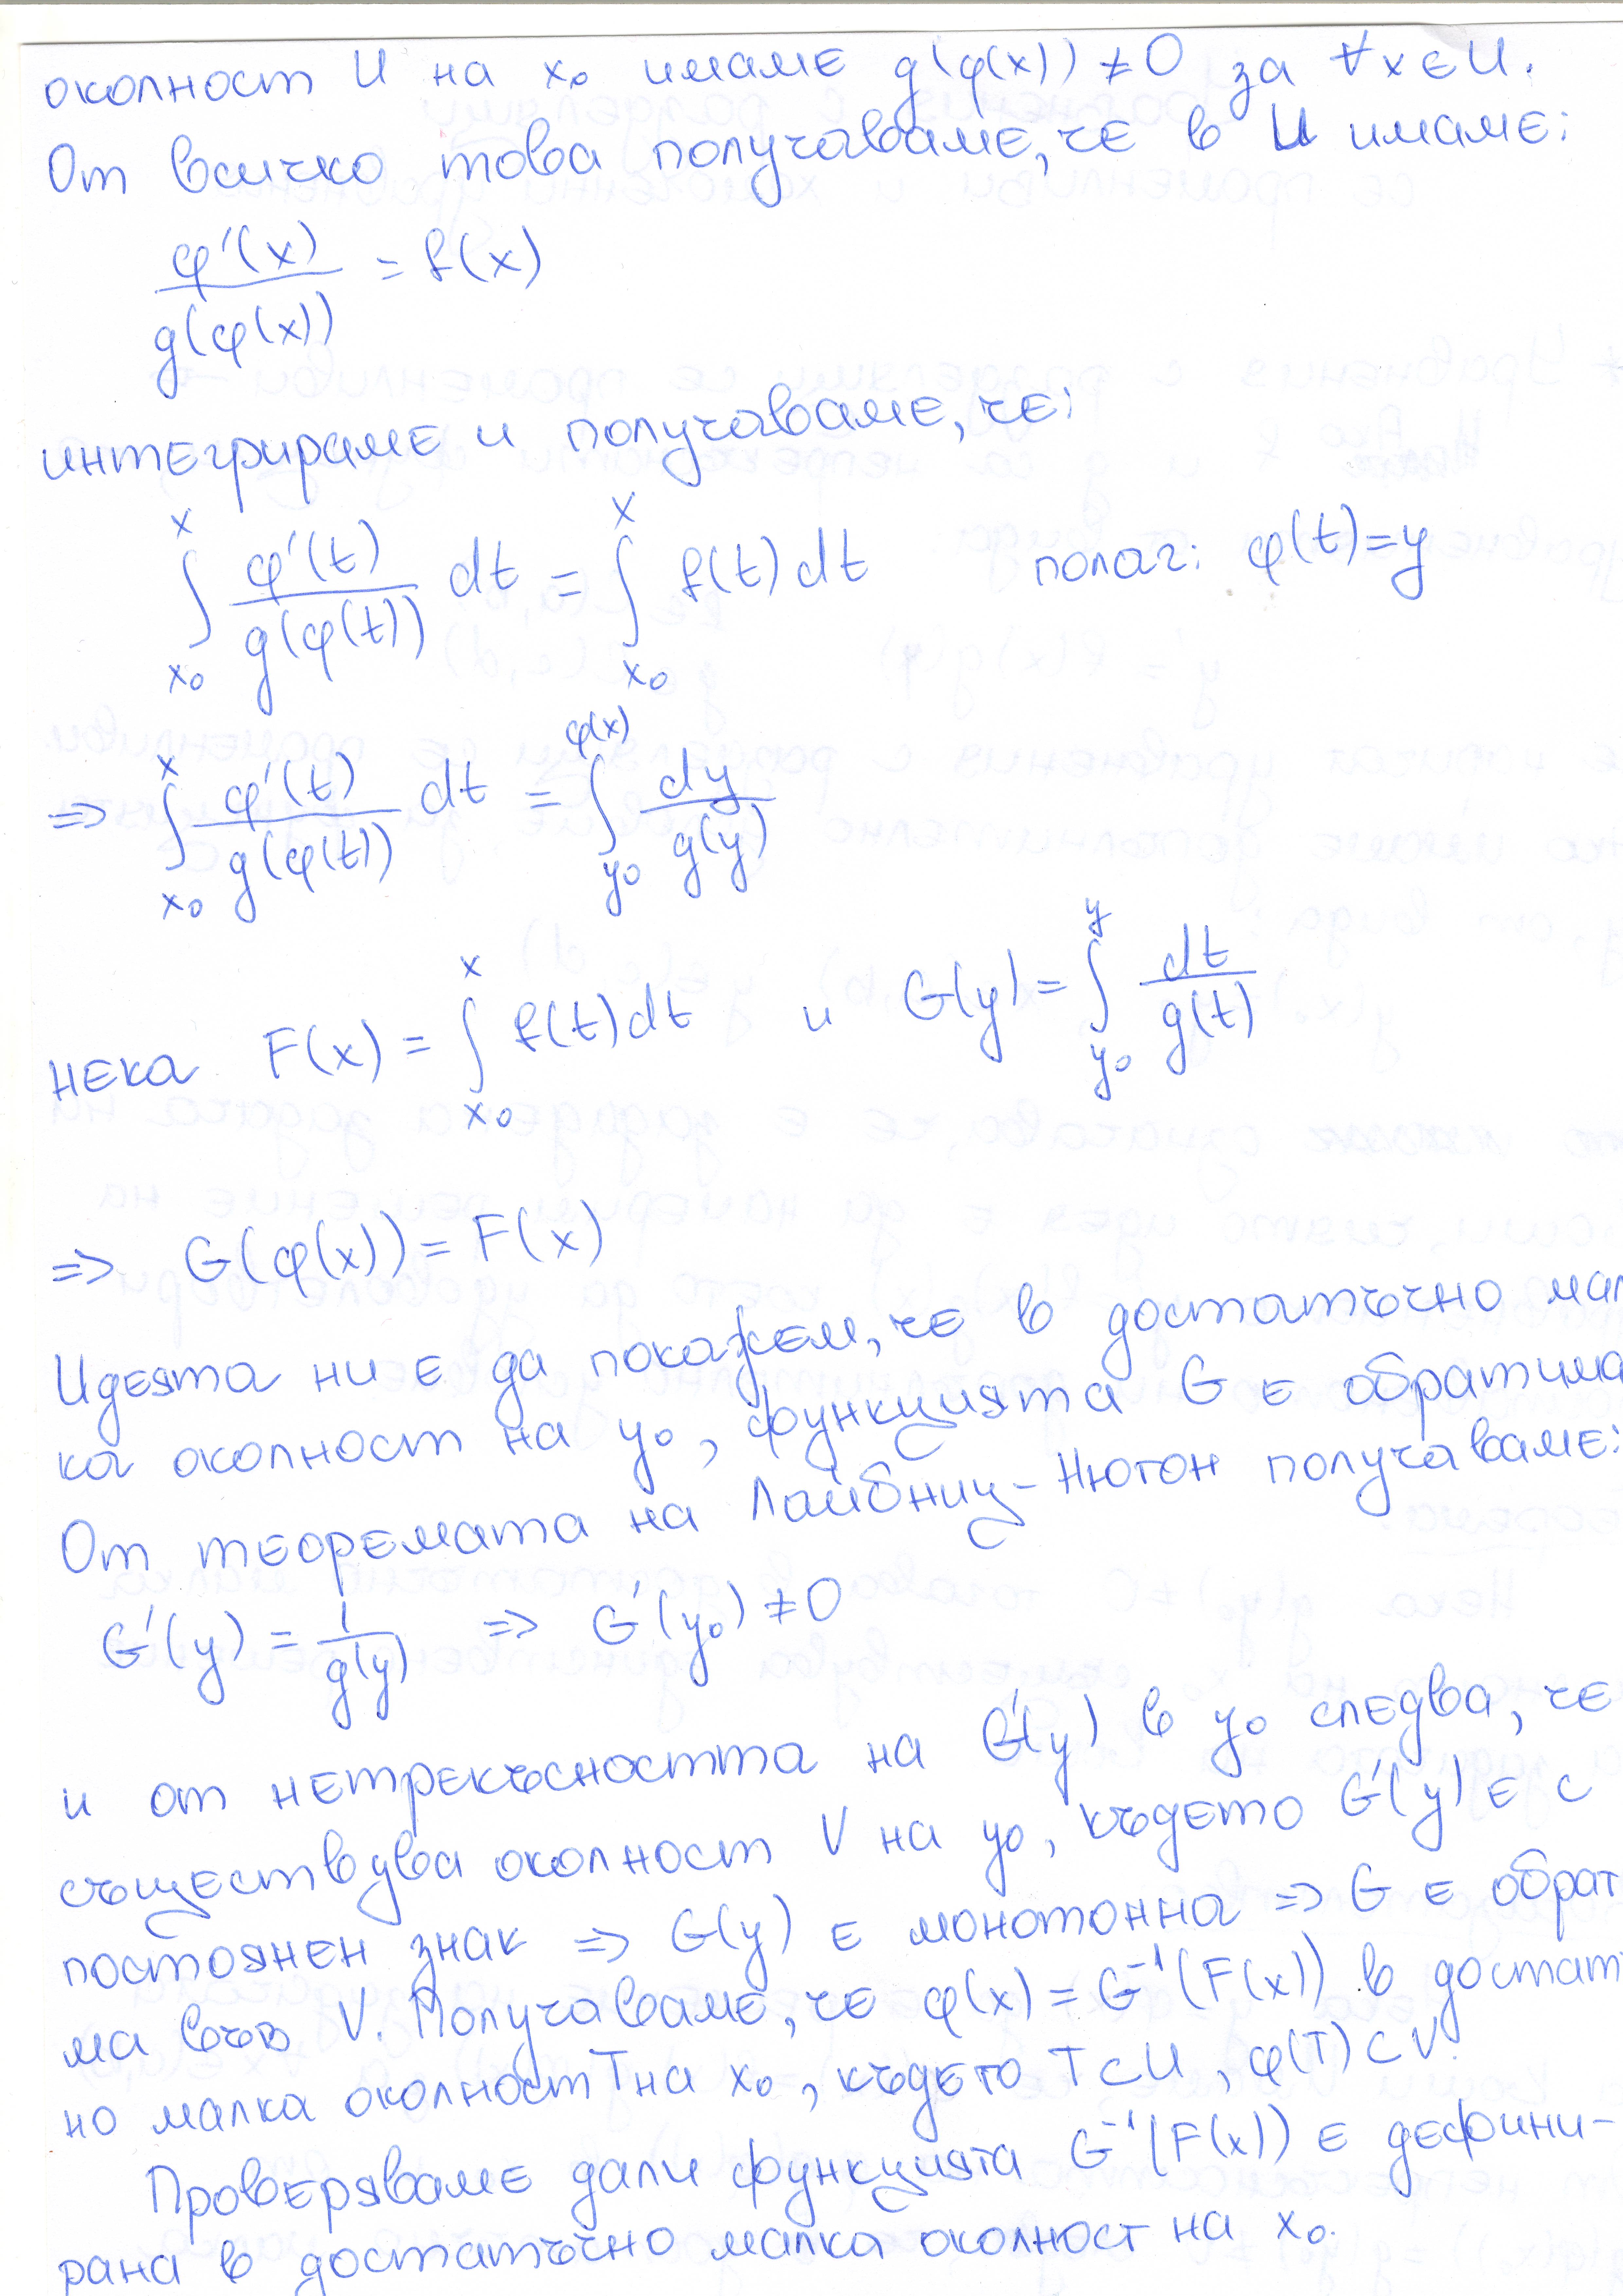 околност U на x₀ имаме g(φ(x)) ≠ 0 за ∀x ∈ U.
От всичко това получаваме, че в U имаме:
φ'(x)/g(φ(x)) = f(x)
интегрираме и получаваме, че:
∫_{x₀}^{x} φ'(t)/g(φ(t)) dt = ∫_{x₀}^{x} f(t) dt полаг: φ(t) = y
=> ∫_{x₀}^{x} φ'(t)/g(φ(t)) dt = ∫_{y₀}^{φ(x)} dy/g(y)
нека F(x) = ∫_{x₀}^{x} f(t) dt и G(y) = ∫_{y₀}^{y} dt/g(t)
=> G(φ(x)) = F(x)
Идеята ни е да покажем, че в достатъчно мал
ка околност на y₀, функцията G е обратима
От теоремата на Лайбниц-Нютон получаваме:
G'(y) = 1/g(y) => G'(y₀) ≠ 0
и от нетрекъсността на G'(y) в y₀ следва, че
съществува околност V на y₀, където G'(y) е с
постоянен знак => G(y) е монотонна => G е обрат
ма във V. Получаваме, че φ(x) = G⁻¹(F(x)) в достат
но малка околност T на x₀, където T ⊂ U, φ(T) ⊂ V.
Проверяваме дали функцията G⁻¹(F(x)) е дефини-
рана в достатъчно малка околност на x₀.